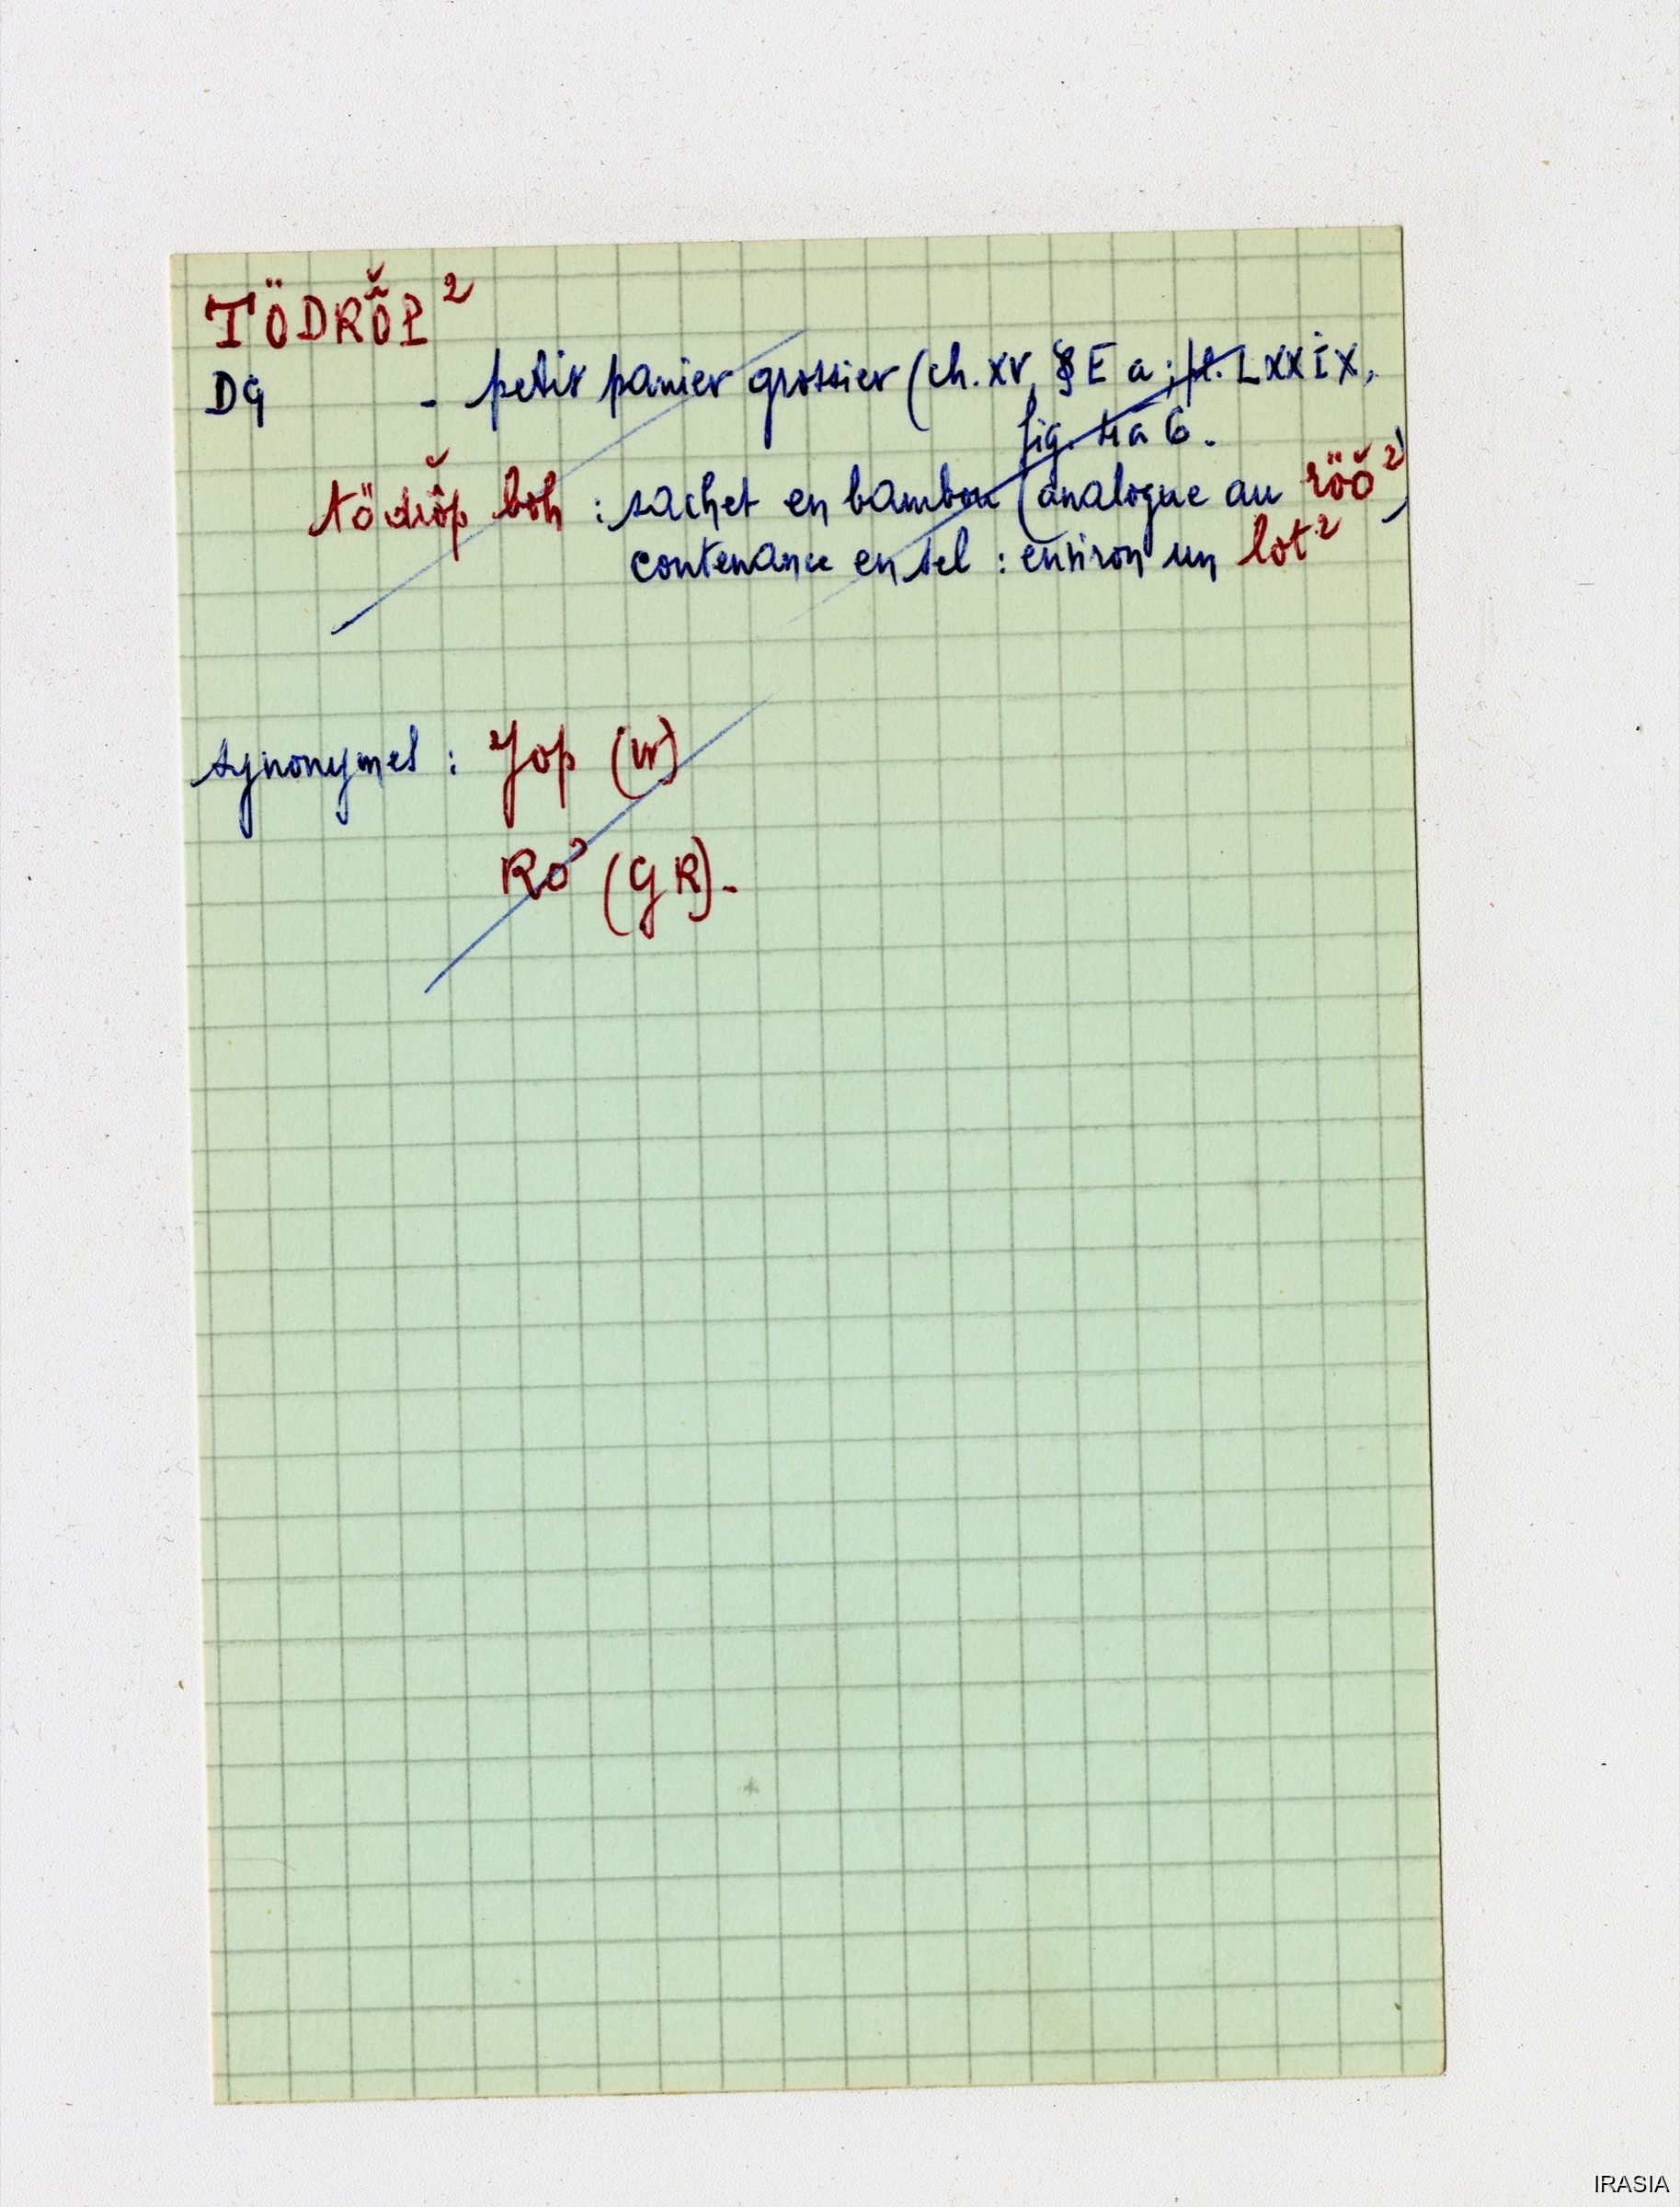 TÖDRÔ̆P²
DG - petit panier grossier (ch. XV, § E a ; pl. LXXIX,
fig. 4 à 6.
tödrô̆p boh : sachet en bambou (analogue au röŏ²)
contenance en sel : environ un lot²
synonymes : Yop (vr)
Ro² (GR).-
IRASIA